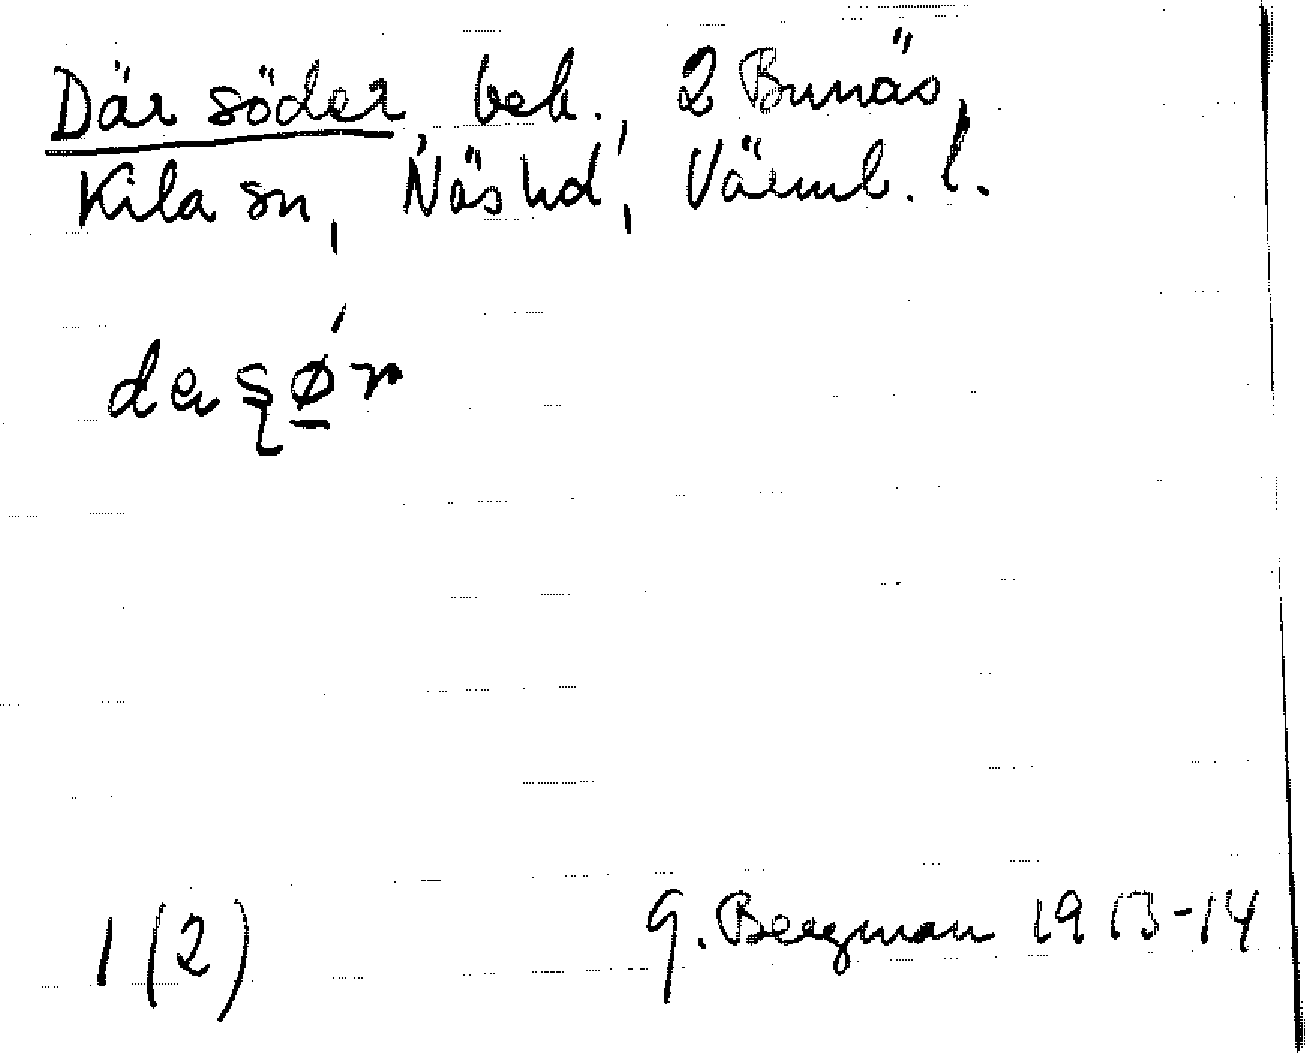 Där söder, beb., 2 Bunäs,
Kila sn, Näs hd, Värml. l.
1 (2)
G. Bergman 1913-14